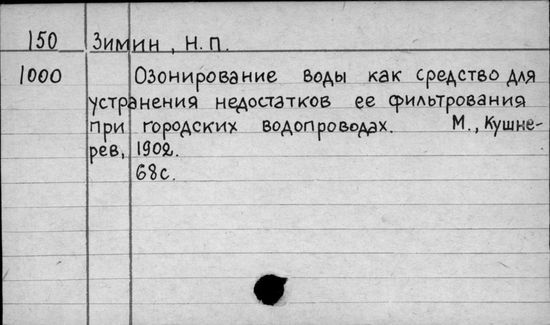 150 Зимин, Н. П.
1000 Озонирование воды как средство для
устранения недостатков ее фильтрования
при городских водопроводах. М., Кушне-
рев, 1902.
68с.